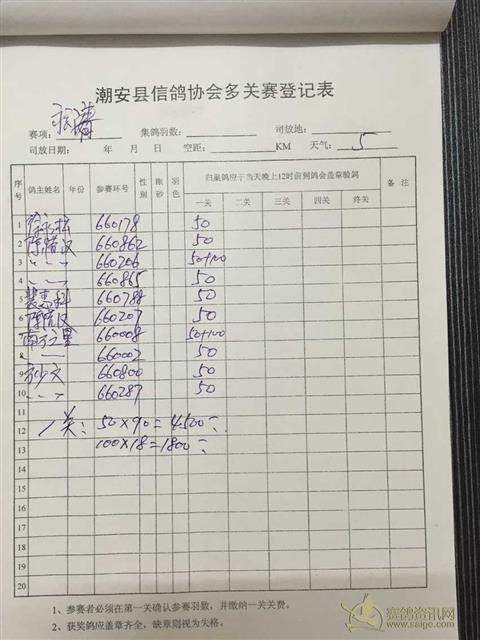 潮安县信鸽协会多关赛登记表
赛项: 集鸽羽数: 司放地:
司放日期: 年 月 日 空距: KM 天气: 5
序号 鸽主姓名 年份 参赛环号 性别 眼砂 羽色 归巢鸽应于当天晚上12时前到鸽会盖章验鸽 备 注
一关 二关 三关 四关 终关
1 660178 50
2 660862 50
3 〃 〃 〃 660206 50+100
4 660865 50
5 660788 50
6 660207 50
7 南方之星 660008 50+100
8 660002 50
9 660800 50
10 660287 50
11
12 一关: 50×90=4500
13 100×18=1800
14
15
16
17
18
19
20
1、参赛者必须在第一关确认参赛羽数，并缴纳一关关费。
2、获奖鸽应盖章齐全，缺章则视为失格。
赛鸽资讯网
www.saige.com